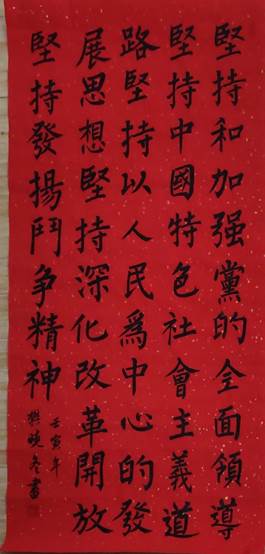 堅持和加强黨的全面領導
堅持中國特色社會主義道
路堅持以人民爲中心的發
展思想堅持深化改革開放
堅持發揚鬥争精神
壬寅年
曉冬書